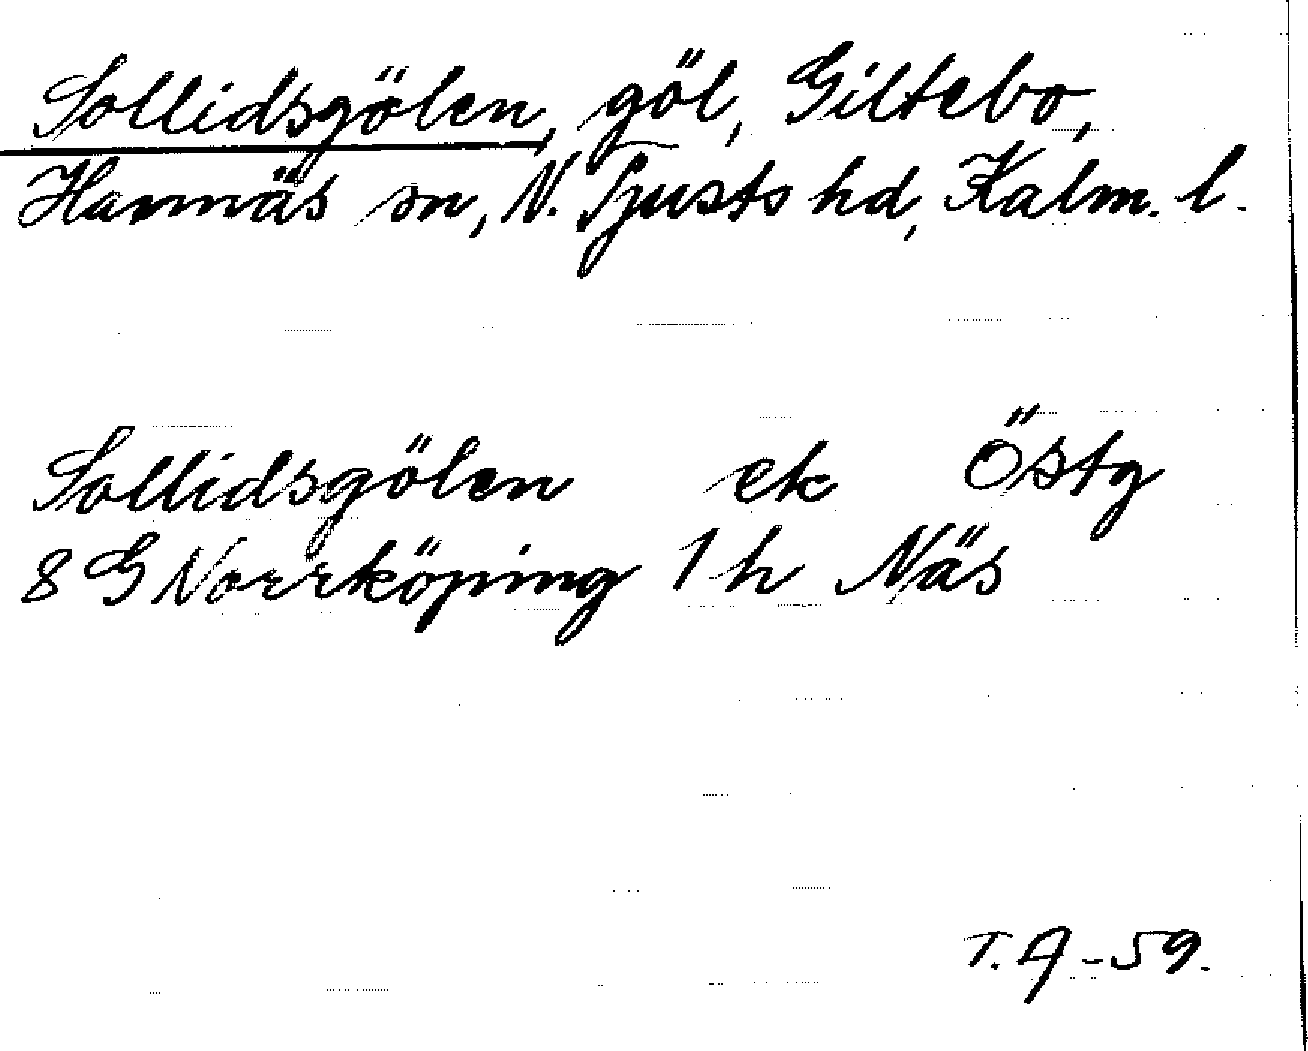 Sollidsgölen, göl, Giltebo,
Hannäs sn, N. Tjusts hd, Kalm. l.
Sollidsgölen ek Östg
8 G Norrköping 1 h Näs
T. A-59.